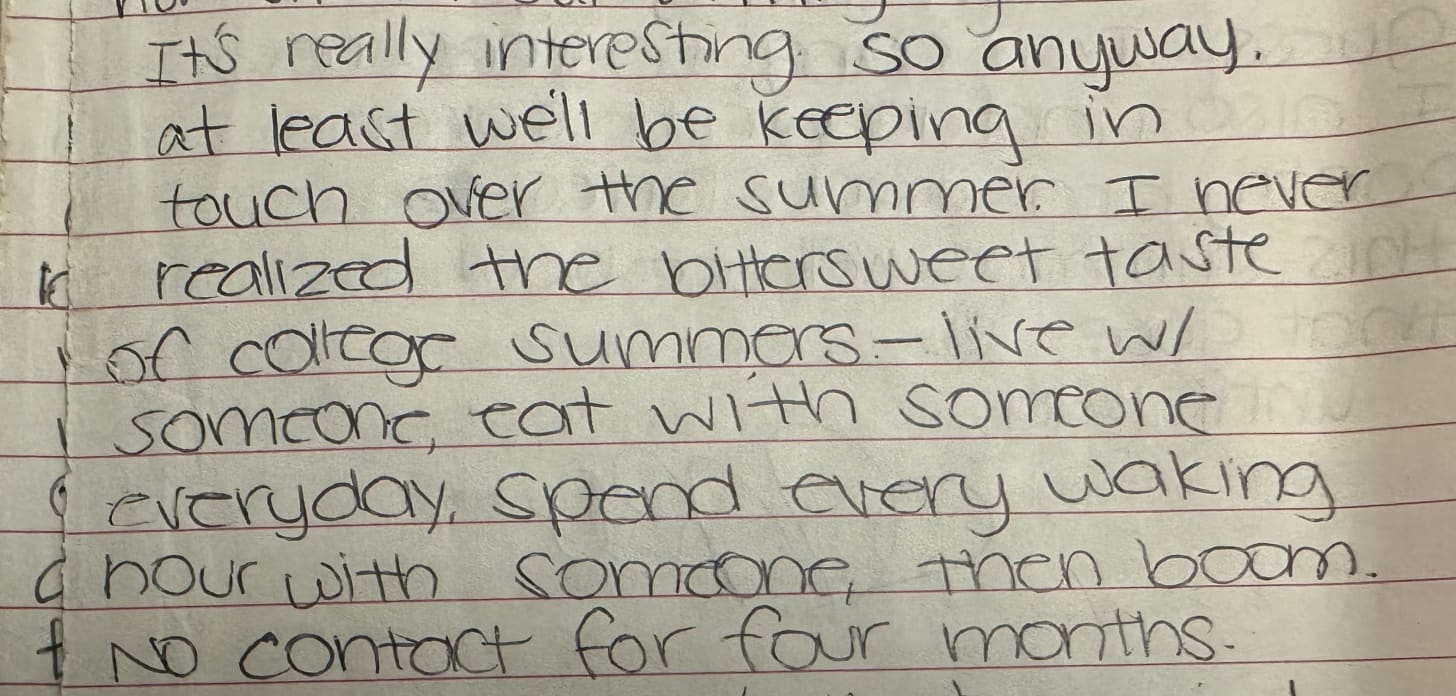 It's really interesting. so anyway.
at least we'll be keeping in
touch over the summer. I never
realized the bittersweet taste
of college summers - live w/
someone, eat with someone
everyday, spend every waking
hour with someone, then boom.
No contact for four months.